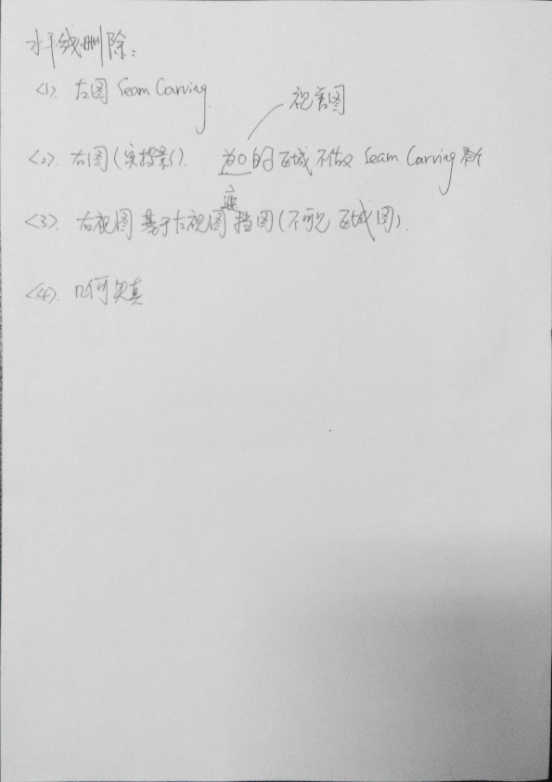 水平线删除:
<1>. 左图 Seam Carving
视差图
<2>. 右图(实投影). 为0的区域不做 Seam Carving
<3>. 右视图基于左视图遮挡图(不可见区域图).
<4>. 几何失真